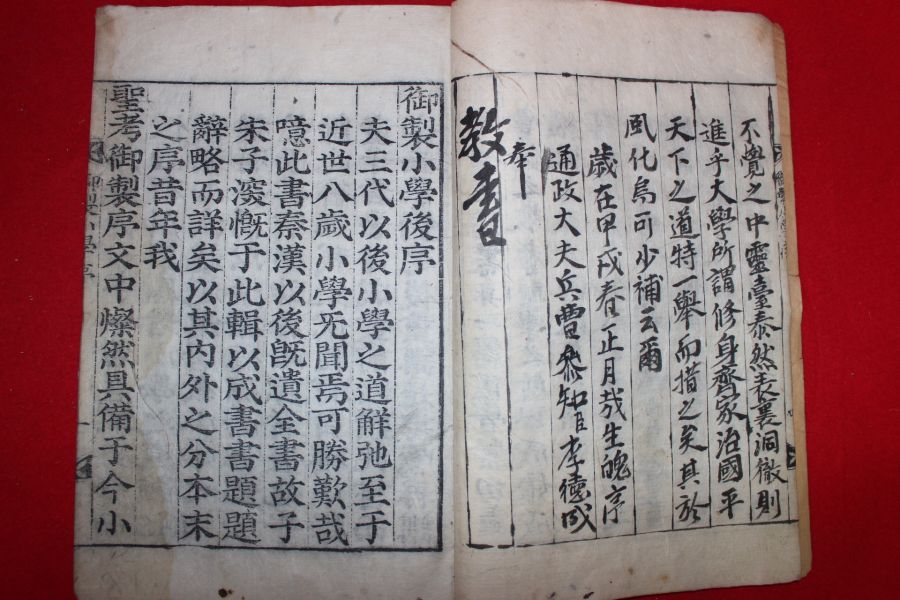 不覺之中靈臺泰然表裏洞徹則
進乎大學所謂修身齊家治國平
天下之道特一舉而措之矣其於
風化烏可少補云爾
歲在甲戌春正月哉生魄序
通政大夫兵曹參知臣李德成
奉
教書
御製小學後序
夫三代以後小學之道解弛至于
近世八歲小學旡聞焉可勝歎哉
噫此書秦漢以後旣遺全書故子
朱子深慨于此輯以成書書題題
辭略而詳矣以其內外之分本末
之序昔年我
聖考御製序文中燦然具備于今小
御製小學序